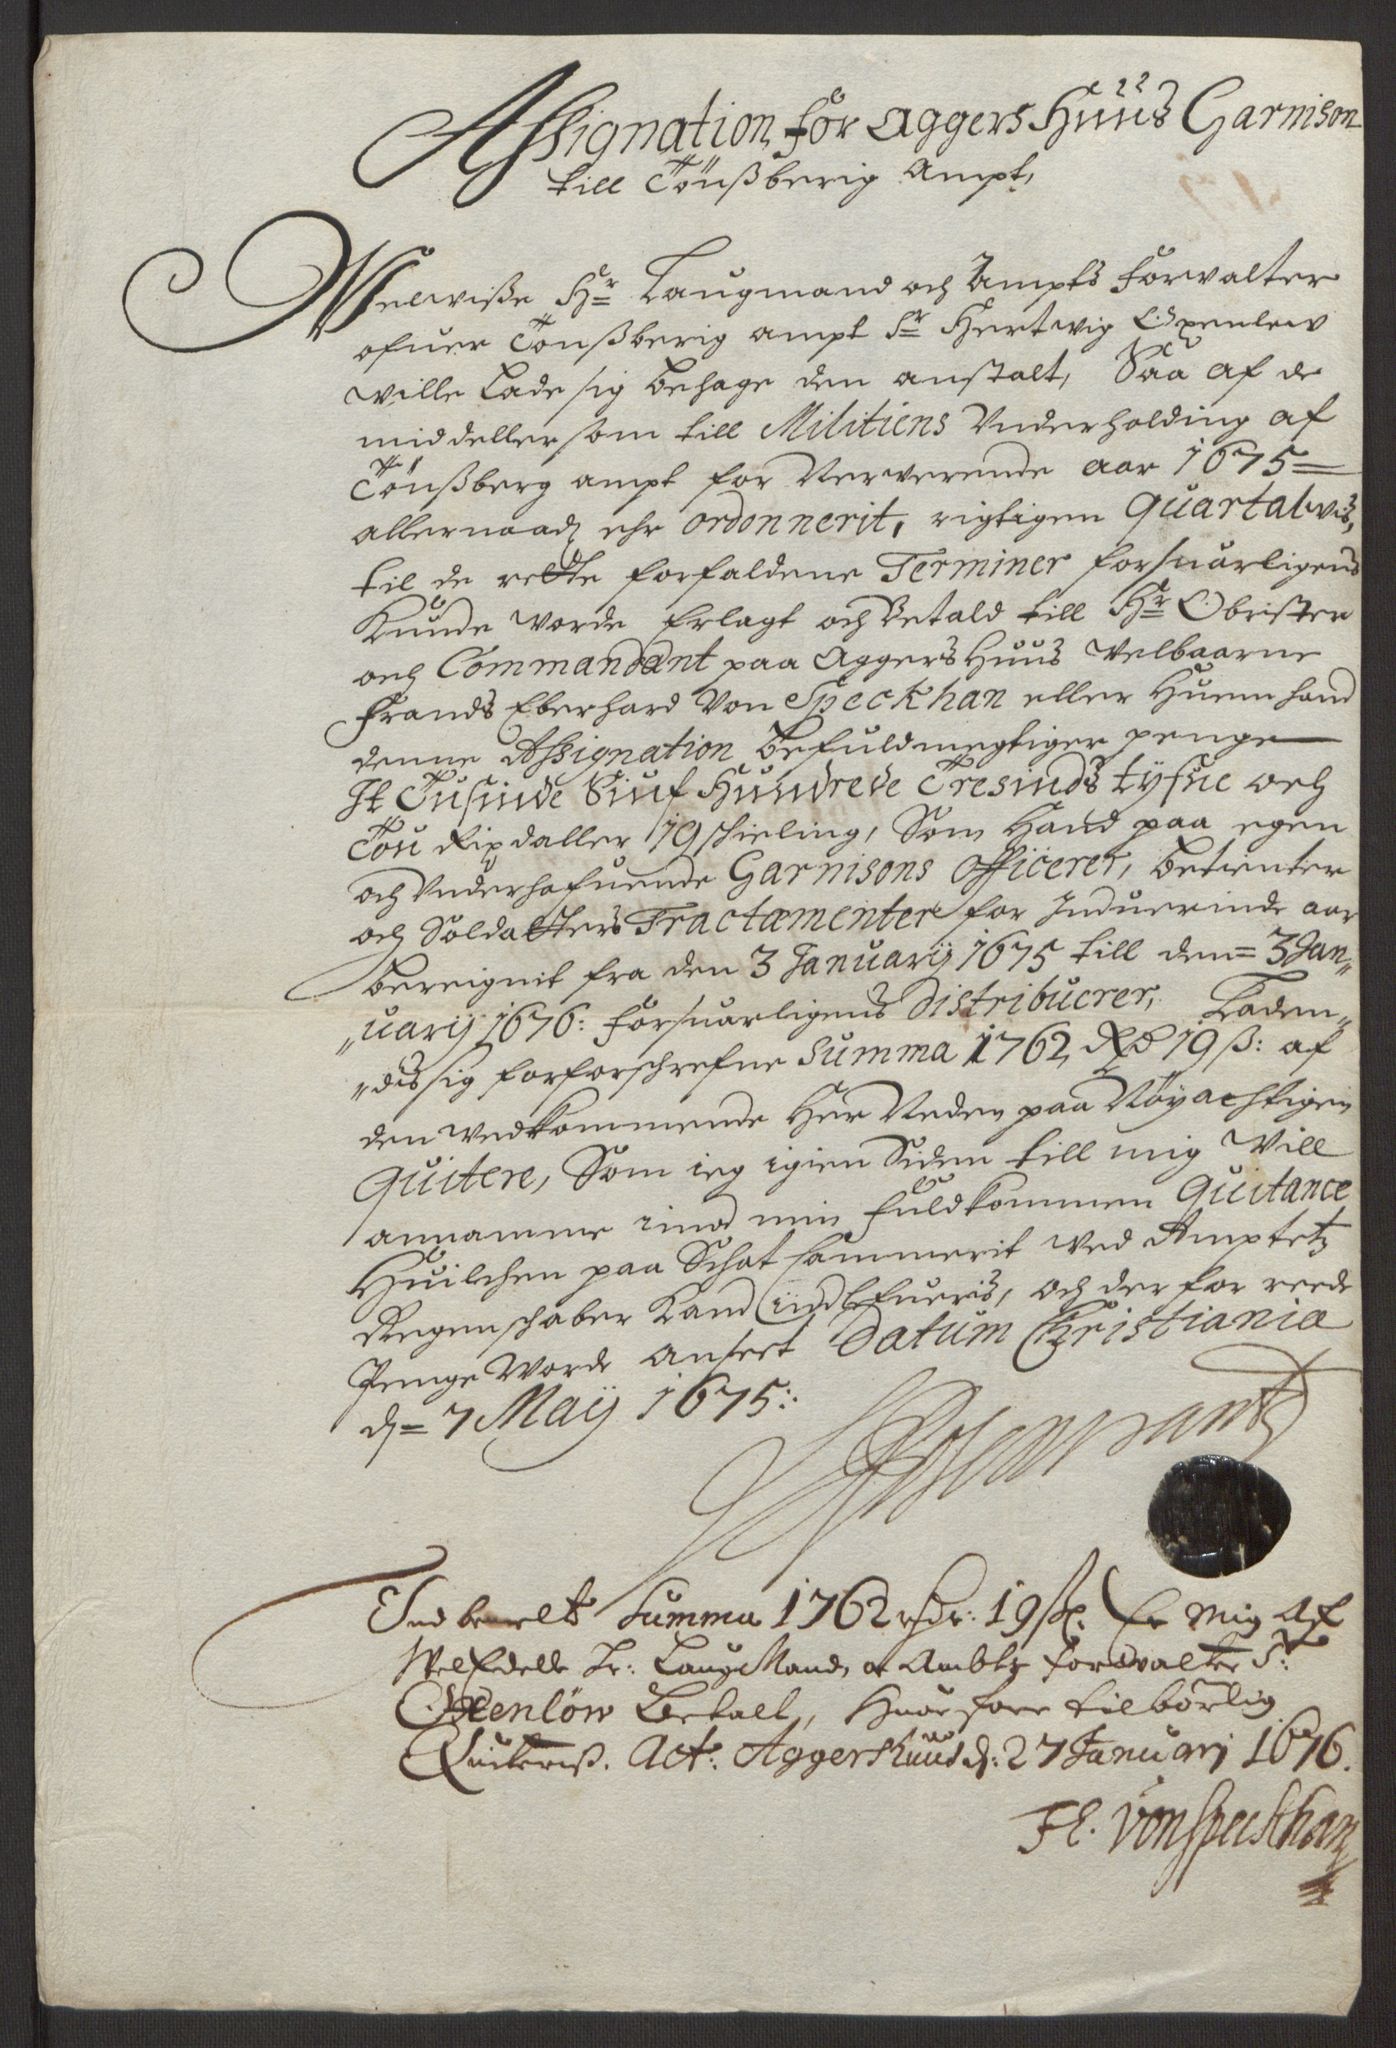 Assignation for Aggers Huus Garnison
till Tönßberig Ampt,
Welwiße Hr Laugmand och Ampts Forwalter
ofuer Tonßberig ampt Sr Hertwig Oxenlew
wille lade sig behage den anstalt, Saa af de
middeller som till Militiens Underholding af
Tönßberg ampt for Nerwerende aar 1675
allernaadl ehr ordonnerit, rigtigen quartalwis,
til de rette forfaldene Terminer forsuarligens
kunde worde Erlagt och Betald till Hr Obrister
och Commandant paa AggersHuus Welbaarne
Frands Eberhard Von Speckhan eller Huem hand
denne Assignation befuldmegtiger penge
It Tusinde Siuf Hundrede Tresinds tyfue och
Tou Rixdaller 19 schieling, Som Hand paa egen
och Underhafuende Garnisons officerer, betienter
och Soldatters Tractamenter for Induerinde aar
bereignit fra den 3 January 1675 till den 3 Jan„
„uary 1676: forsuarligens distribuerer, Laden„
„dis sig forforschrefne summa 1762 Rd 19 ß: af
den wedkommende Her Neden paa Nöyachtigen
Quitere, Som ieg igien Siden till mig Will
annamme imod min fuldkommen Quitance
Huilchen paa Schat Cammerit wed Amptetz
Regenschaber kand indlefueris, och der for reede
Penge Worde anseet Datum Christiania
d. 7 May 1675:
Indbemelte Summa 1762 rdr: 19 sk. Er Mig Af
WelEdelle Hr: LaugMand, och Ambtz Forwalter Sr:
Oxenlöw betalt, Huor fore tilbörlig
Quiteris. Act: Aggershuus d: 27 Januarj 1676.
F E. Von Speckhan